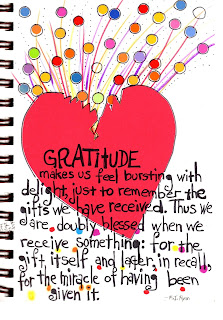 GRATITUDE
makes us feel bursting with
delight, just to remember the
gifts we have received. Thus we
are doubly blessed when we
receive something: for the
gift itself and later, in recall,
for the miracle of having been
given it.